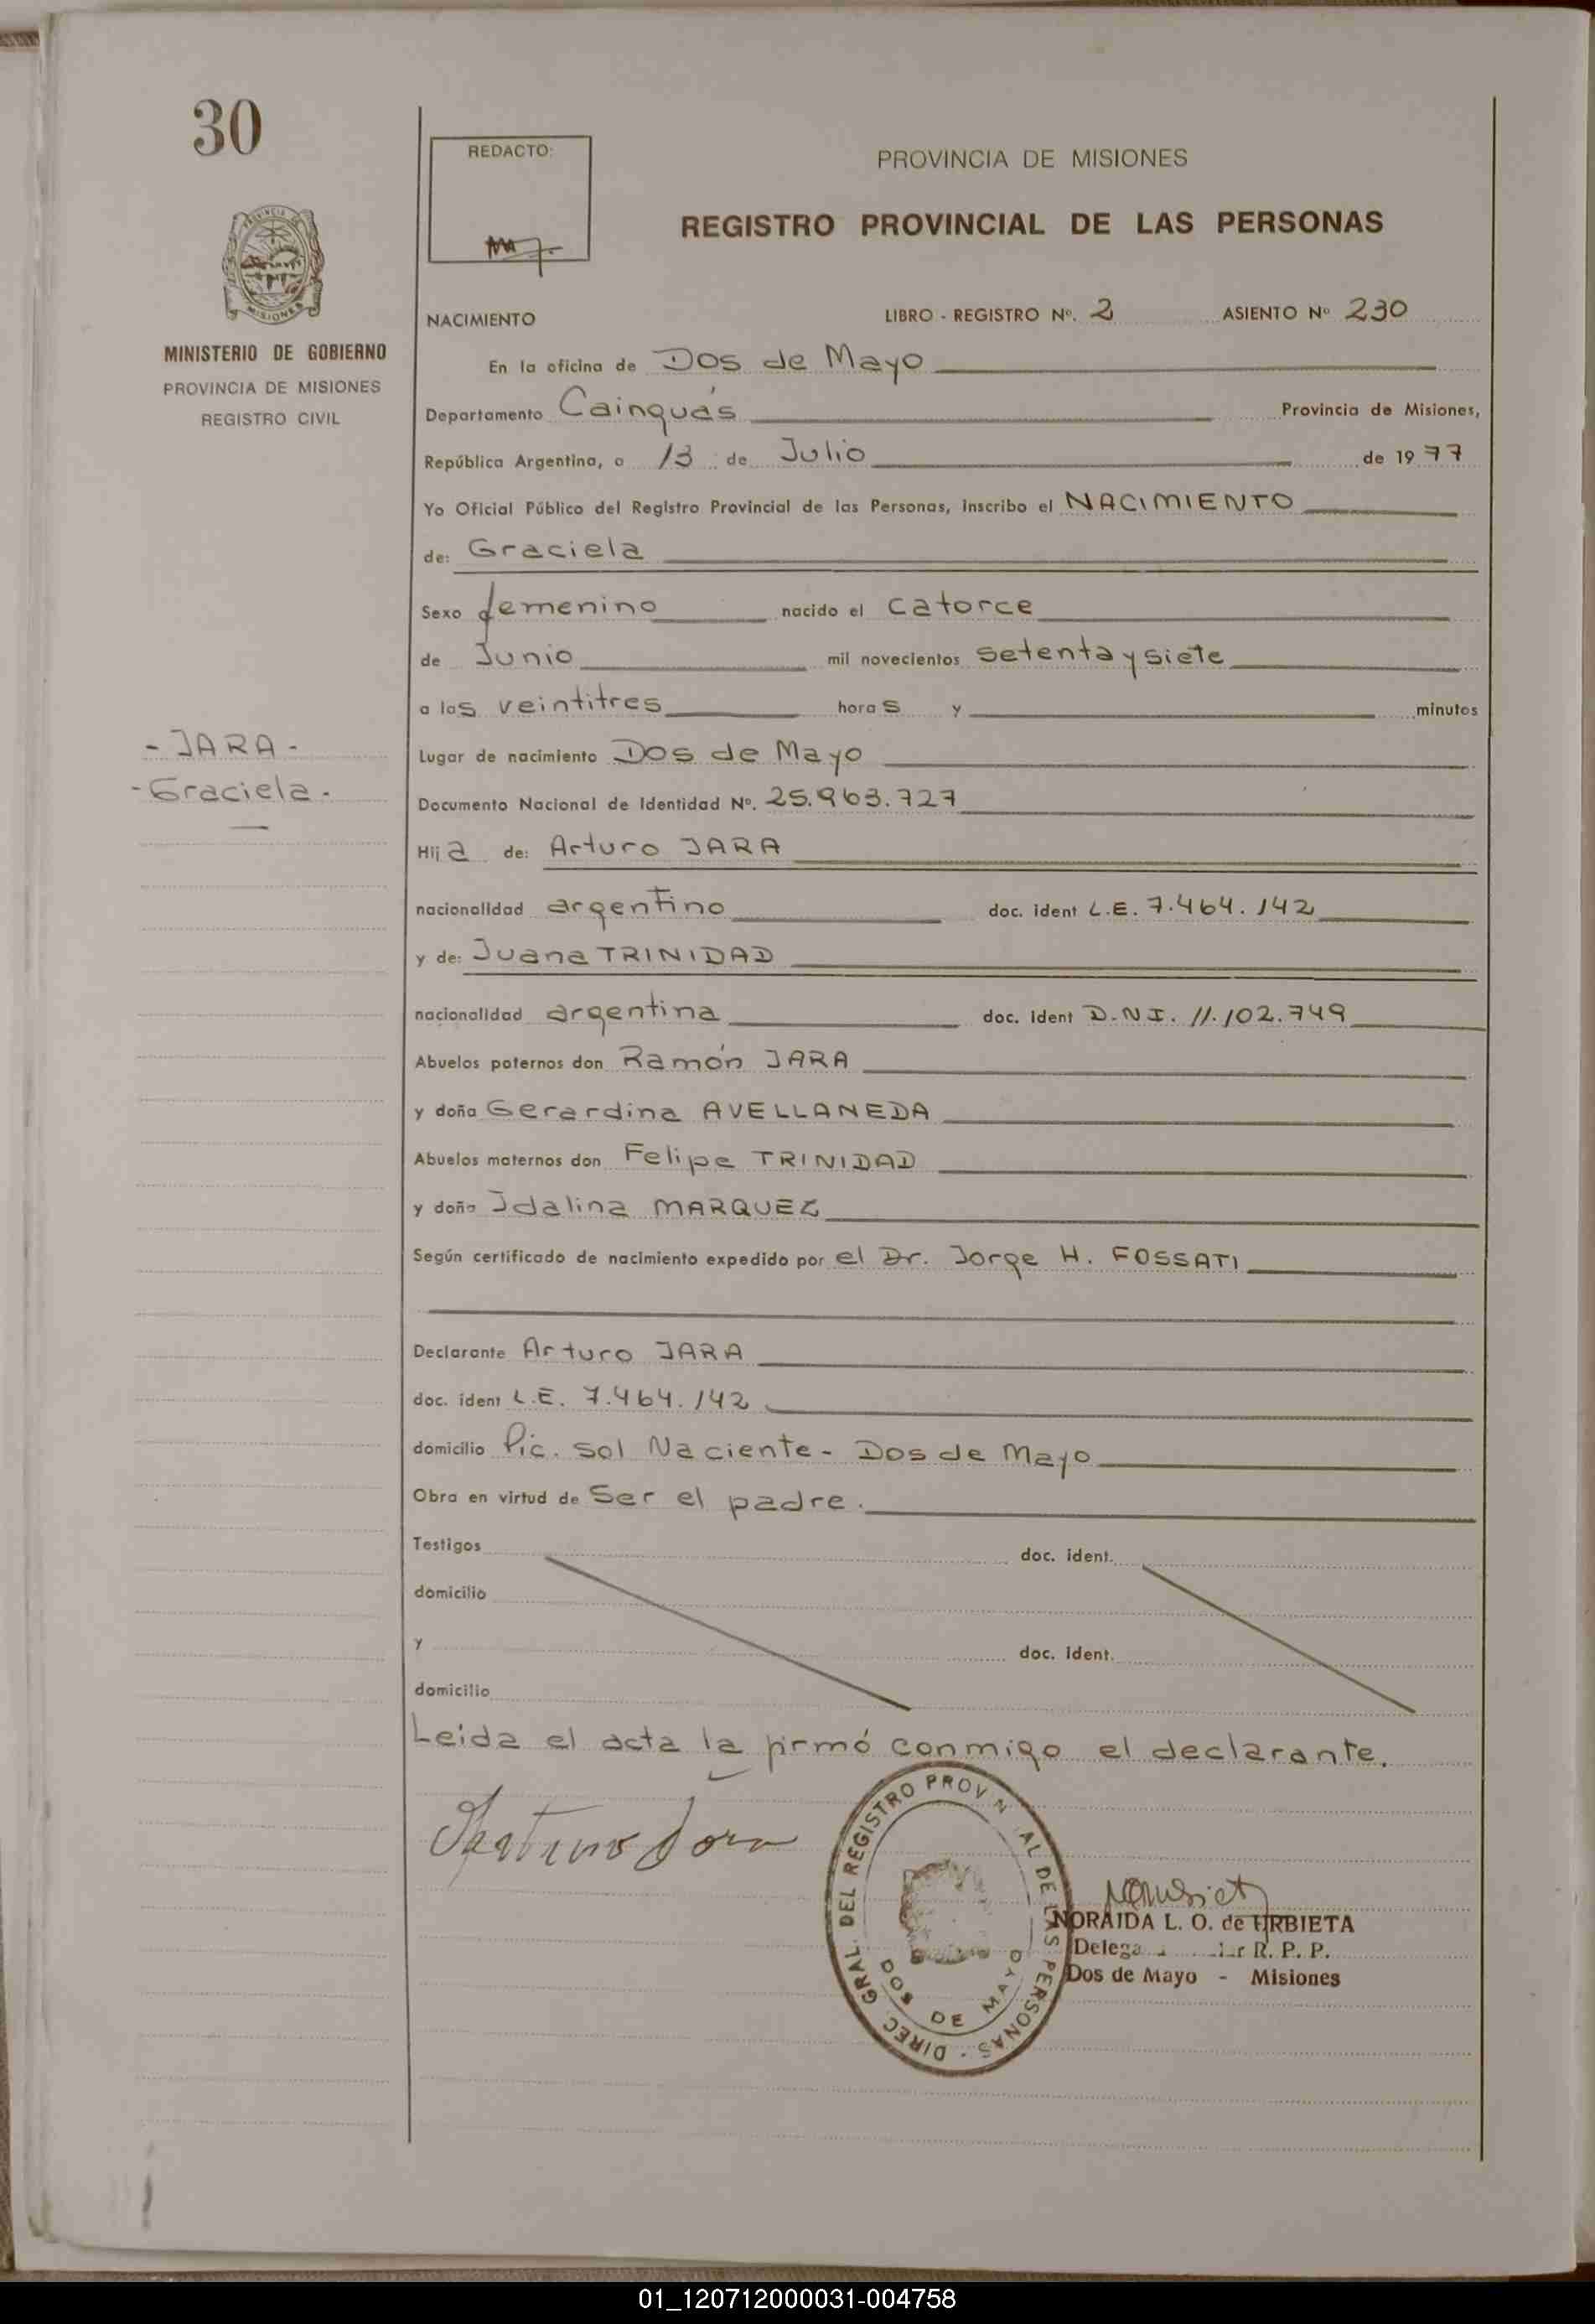 30
REDACTO:
PROVINCIA DE MISIONES
REGISTRO PROVINCIAL DE LAS PERSONAS
PROVINCIA DE
MISIONES
MINISTERIO DE GOBIERNO
PROVINCIA DE MISIONES
REGISTRO CIVIL
NACIMIENTO LIBRO - REGISTRO Nº. 2 ASIENTO Nº 230
En la oficina de Dos de Mayo
Departamento Cainguás Provincia de Misiones,
República Argentina, a 13 de Julio de 1977
Yo Oficial Público del Registro Provincial de las Personas, inscribo el NACIMIENTO
de: Graciela
Sexo femenino nacido el catorce
de Junio mil novecientos setenta y siete
a las veintitres horas y minutos
- JARA -
- Graciela -
Lugar de nacimiento Dos de Mayo
Documento Nacional de Identidad Nº. 25.963.727
Hija de: Arturo JARA
nacionalidad argentino doc. ident L.E. 7.464.142
y de: Juana TRINIDAD
nacionalidad argentina doc. ident D.N.I. 11.102.749
Abuelos paternos don Ramón JARA
y doña Gerardina AVELLANEDA
Abuelos maternos don Felipe TRINIDAD
y doña Idalina MARQUEZ
Según certificado de nacimiento expedido por el Dr. Jorge H. FOSSATI
Declarante Arturo JARA
doc. ident L.E. 7.464.142
domicilio Pic. Sol Naciente - Dos de Mayo
Obra en virtud de Ser el padre.
Testigos doc. ident.
domicilio
y doc. ident.
domicilio
Leída el acta la firmó conmigo el declarante.
DIREC. GRAL. DEL REGISTRO PROVIN AL DE LAS PERSONAS -
DOS DE MAYO
NORAIDA L. O. de URBIETA
R. P. P.
Dos de Mayo - Misiones
01_120712000031-004758